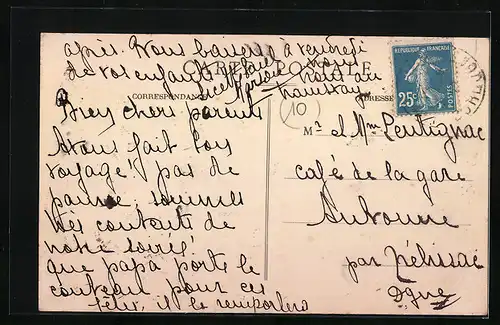 après. Nous baisers à vendredi
de vos enfants
CARTE POSTALE
CORRESPONDANCE
ADRESSE
RÉPUBLIQUE FRANÇAISE
25c
POSTES
10
Bien chers parents
Avons fait bon
voyage pas de
panne, sommes
très contents de
notre soirée
que papa porte le
couteau pour ces
fêtes, il le remportera
Mr et Mme Pentignac
café de la gare
par Nélissac
Dgne